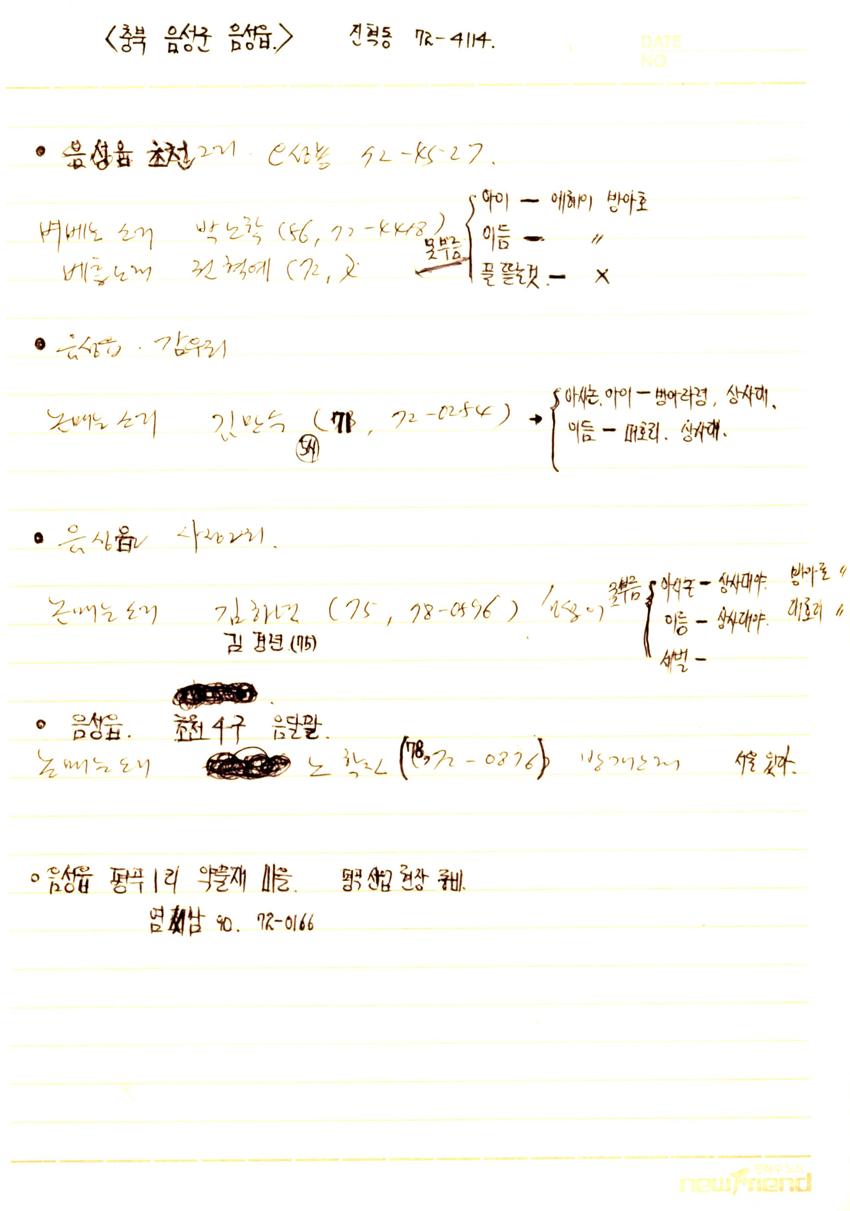 <충북 음성군 음성읍.> 진혁동 72-4114.
DATE
NO
• 음성읍 초천2리. 92-4527.
벼베는 소리 박노학 (56, 72-4448) 아이 — 에헤이 방아호
모부름 이듬 — 〃
베틀노래 전혁예 (72, X 끝 뜯는것. — X
• 음성읍. 감우리
논매는 소리 김만수 (71, 72-0254) → 아시논. 아이 — 방아타령, 상사대.
54 이듬 — 대호리. 상사대.
• 음성읍 사정2리.
논매는소리 김하년 (75, 78-0596) 모부름 아시논 — 상사대야. 방아호 〃
김경년 (75) 이듬 — 상사대야. 대호리 〃
세벌 —
• 음성읍. 초천4구 음달말.
논매는소리 노학진 (78, 72-0876) 방개노래
○음성읍 평곡1리 약물재 마을. 평곡 산업 현장
염 남 90. 72-0166
newfriend